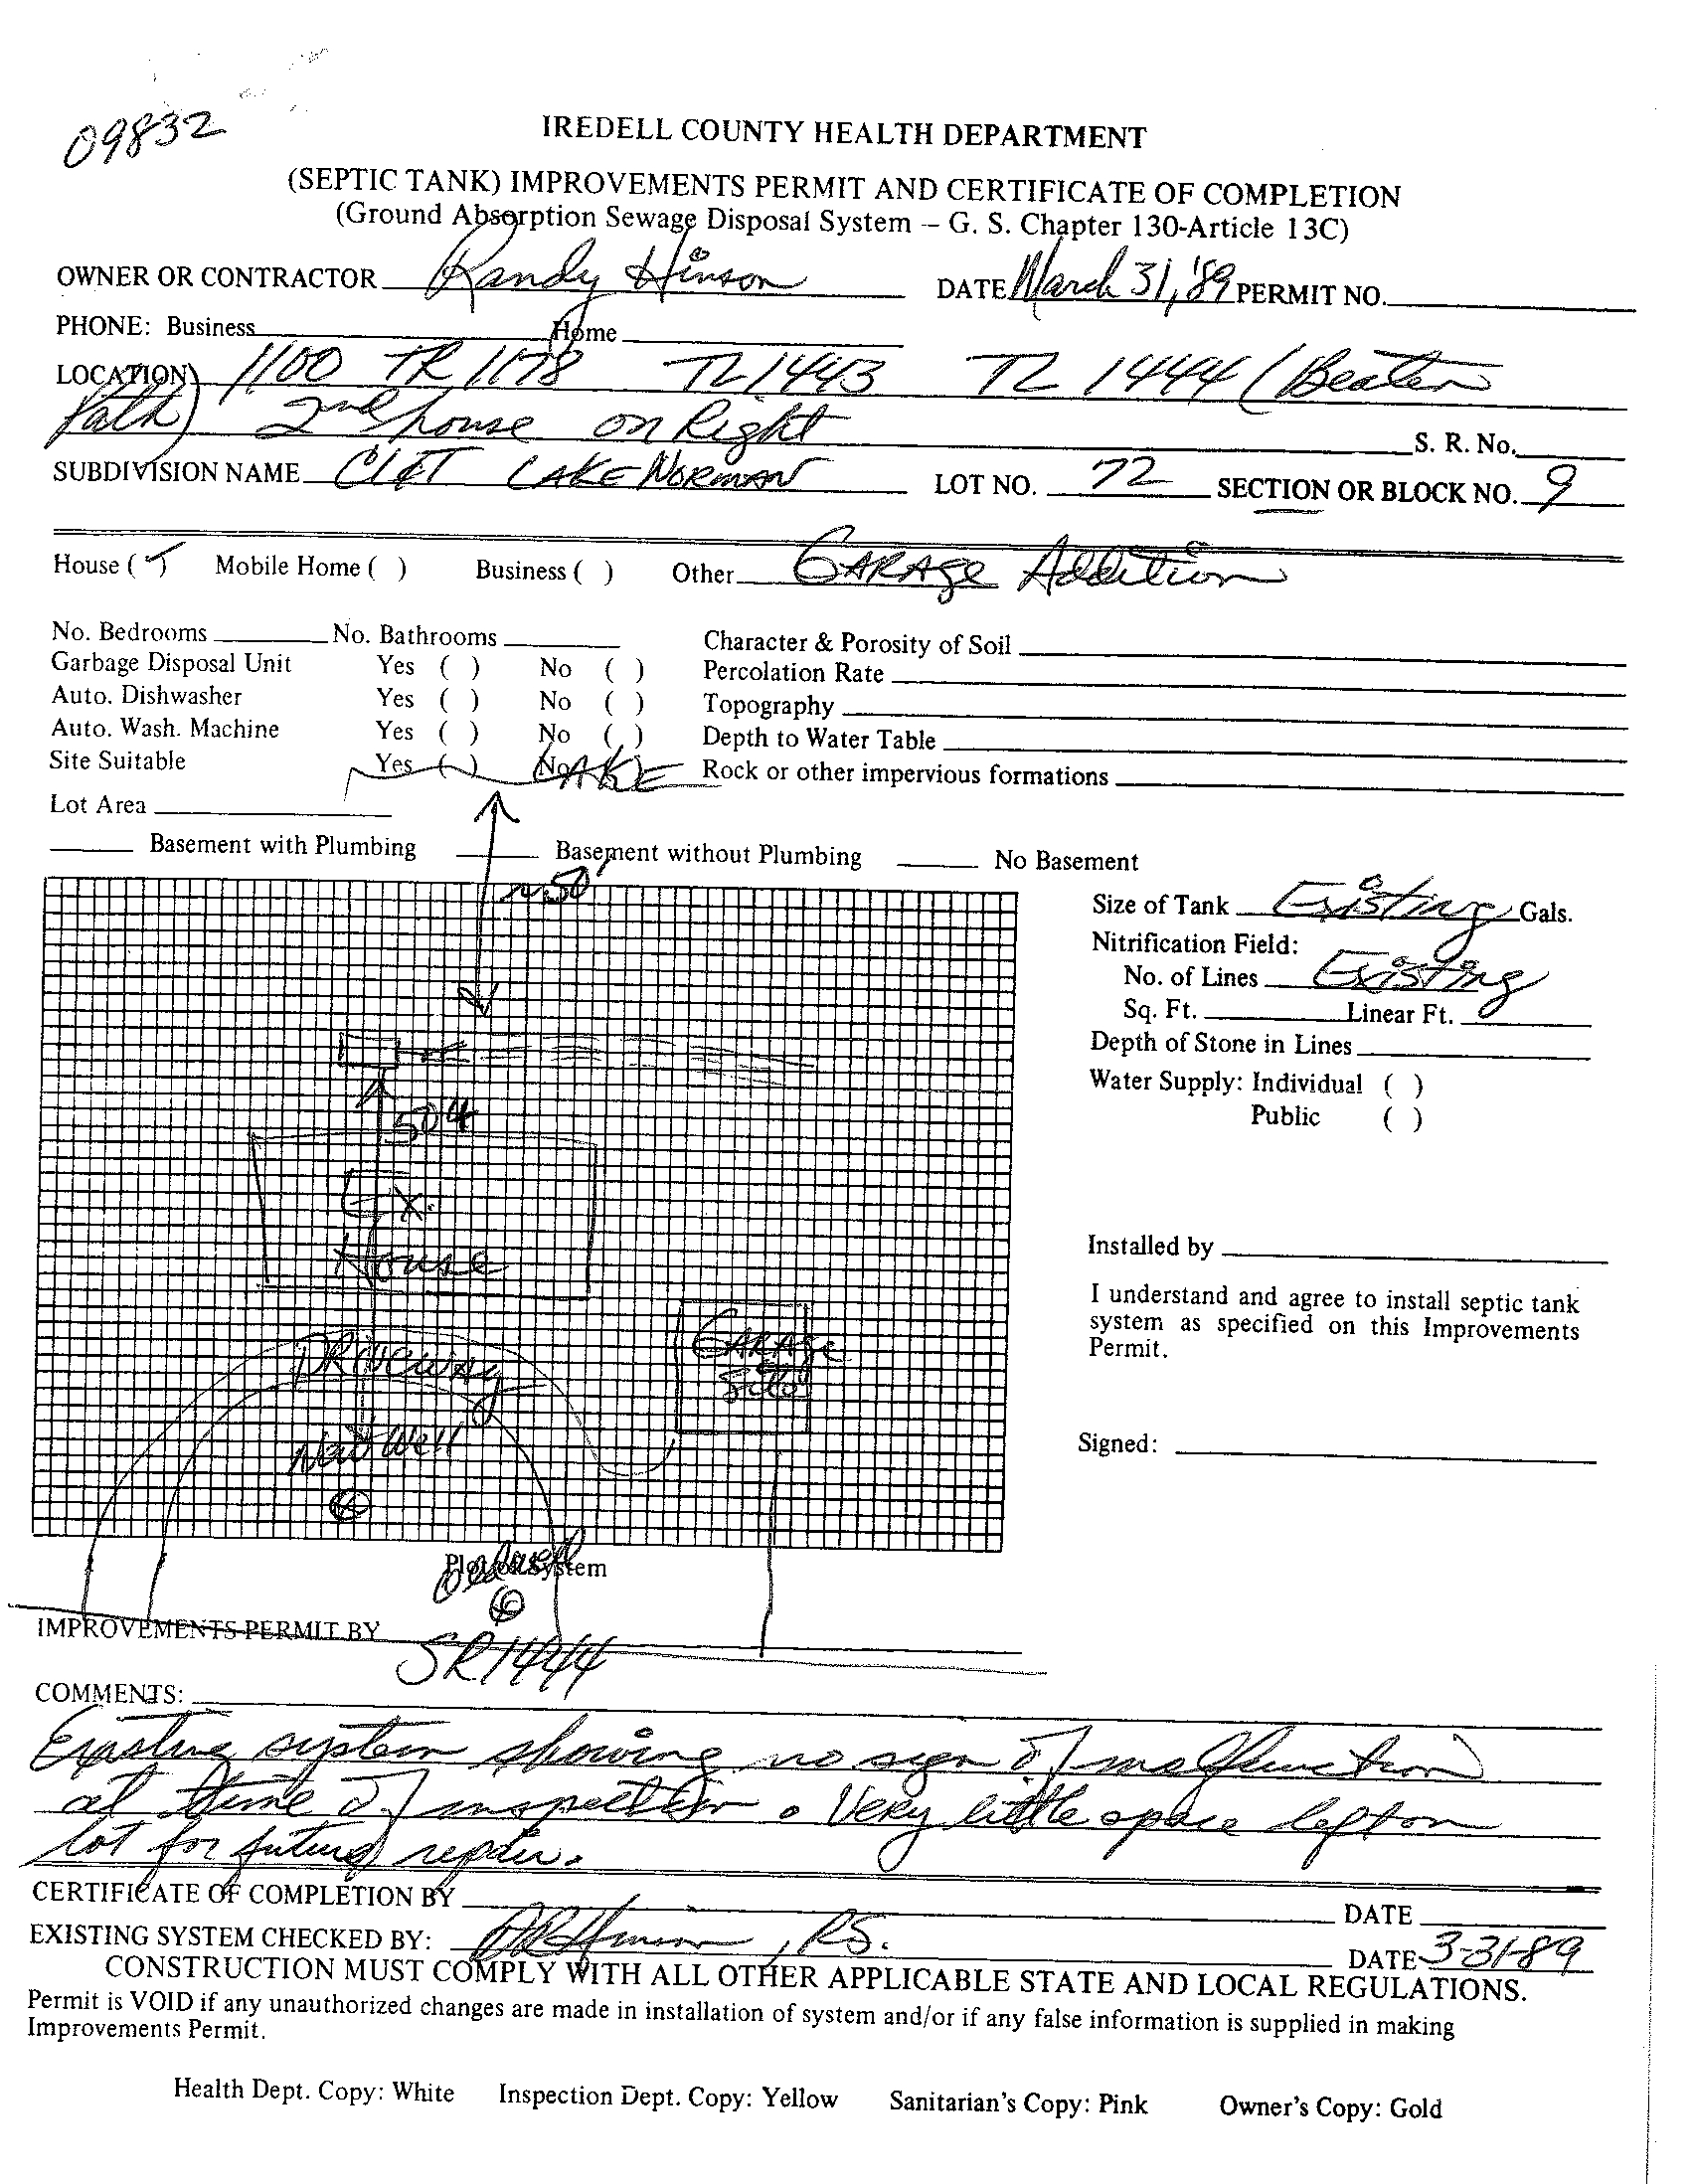 09832
IREDELL COUNTY HEALTH DEPARTMENT
(SEPTIC TANK) IMPROVEMENTS PERMIT AND CERTIFICATE OF COMPLETION
(Ground Absorption Sewage Disposal System – G. S. Chapter 130-Article 13C)
OWNER OR CONTRACTOR Randy Hinson DATE March 31, '89 PERMIT NO.
PHONE: Business Home
LOCATION 1100 TR 1178 TL 1443 TL 1444 (Beaten
Path) 2nd house on Right S. R. No.
SUBDIVISION NAME LAKE NORMAN LOT NO. 72 SECTION OR BLOCK NO. 9
House ( ) Mobile Home ( ) Business ( ) Other GARAGE Addition
No. Bedrooms No. Bathrooms Character & Porosity of Soil
Garbage Disposal Unit Yes ( ) No ( ) Percolation Rate
Auto. Dishwasher Yes ( ) No ( ) Topography
Auto. Wash. Machine Yes ( ) No ( ) Depth to Water Table
Site Suitable Yes ( ) No LAKE Rock or other impervious formations
Lot Area
Basement with Plumbing Basement without Plumbing No Basement
~50'
Size of Tank Existing Gals.
Nitrification Field:
No. of Lines Existing
Sq. Ft. Linear Ft.
Depth of Stone in Lines
Water Supply: Individual ( )
Public ( )
Ex.
House
GARAGE
DRIVEWAY
New Well
Installed by
I understand and agree to install septic tank
system as specified on this Improvements
Permit.
Signed:
Plot of System
Old well
IMPROVEMENTS PERMIT BY
SR 1444
COMMENTS:
Existing system showing no sign of malfunction
at time of inspection. Very little space left on
lot for future repair.
CERTIFICATE OF COMPLETION BY DATE
EXISTING SYSTEM CHECKED BY: , RS. DATE 3-31-89
CONSTRUCTION MUST COMPLY WITH ALL OTHER APPLICABLE STATE AND LOCAL REGULATIONS.
Permit is VOID if any unauthorized changes are made in installation of system and/or if any false information is supplied in making
Improvements Permit.
Health Dept. Copy: White Inspection Dept. Copy: Yellow Sanitarian's Copy: Pink Owner's Copy: Gold